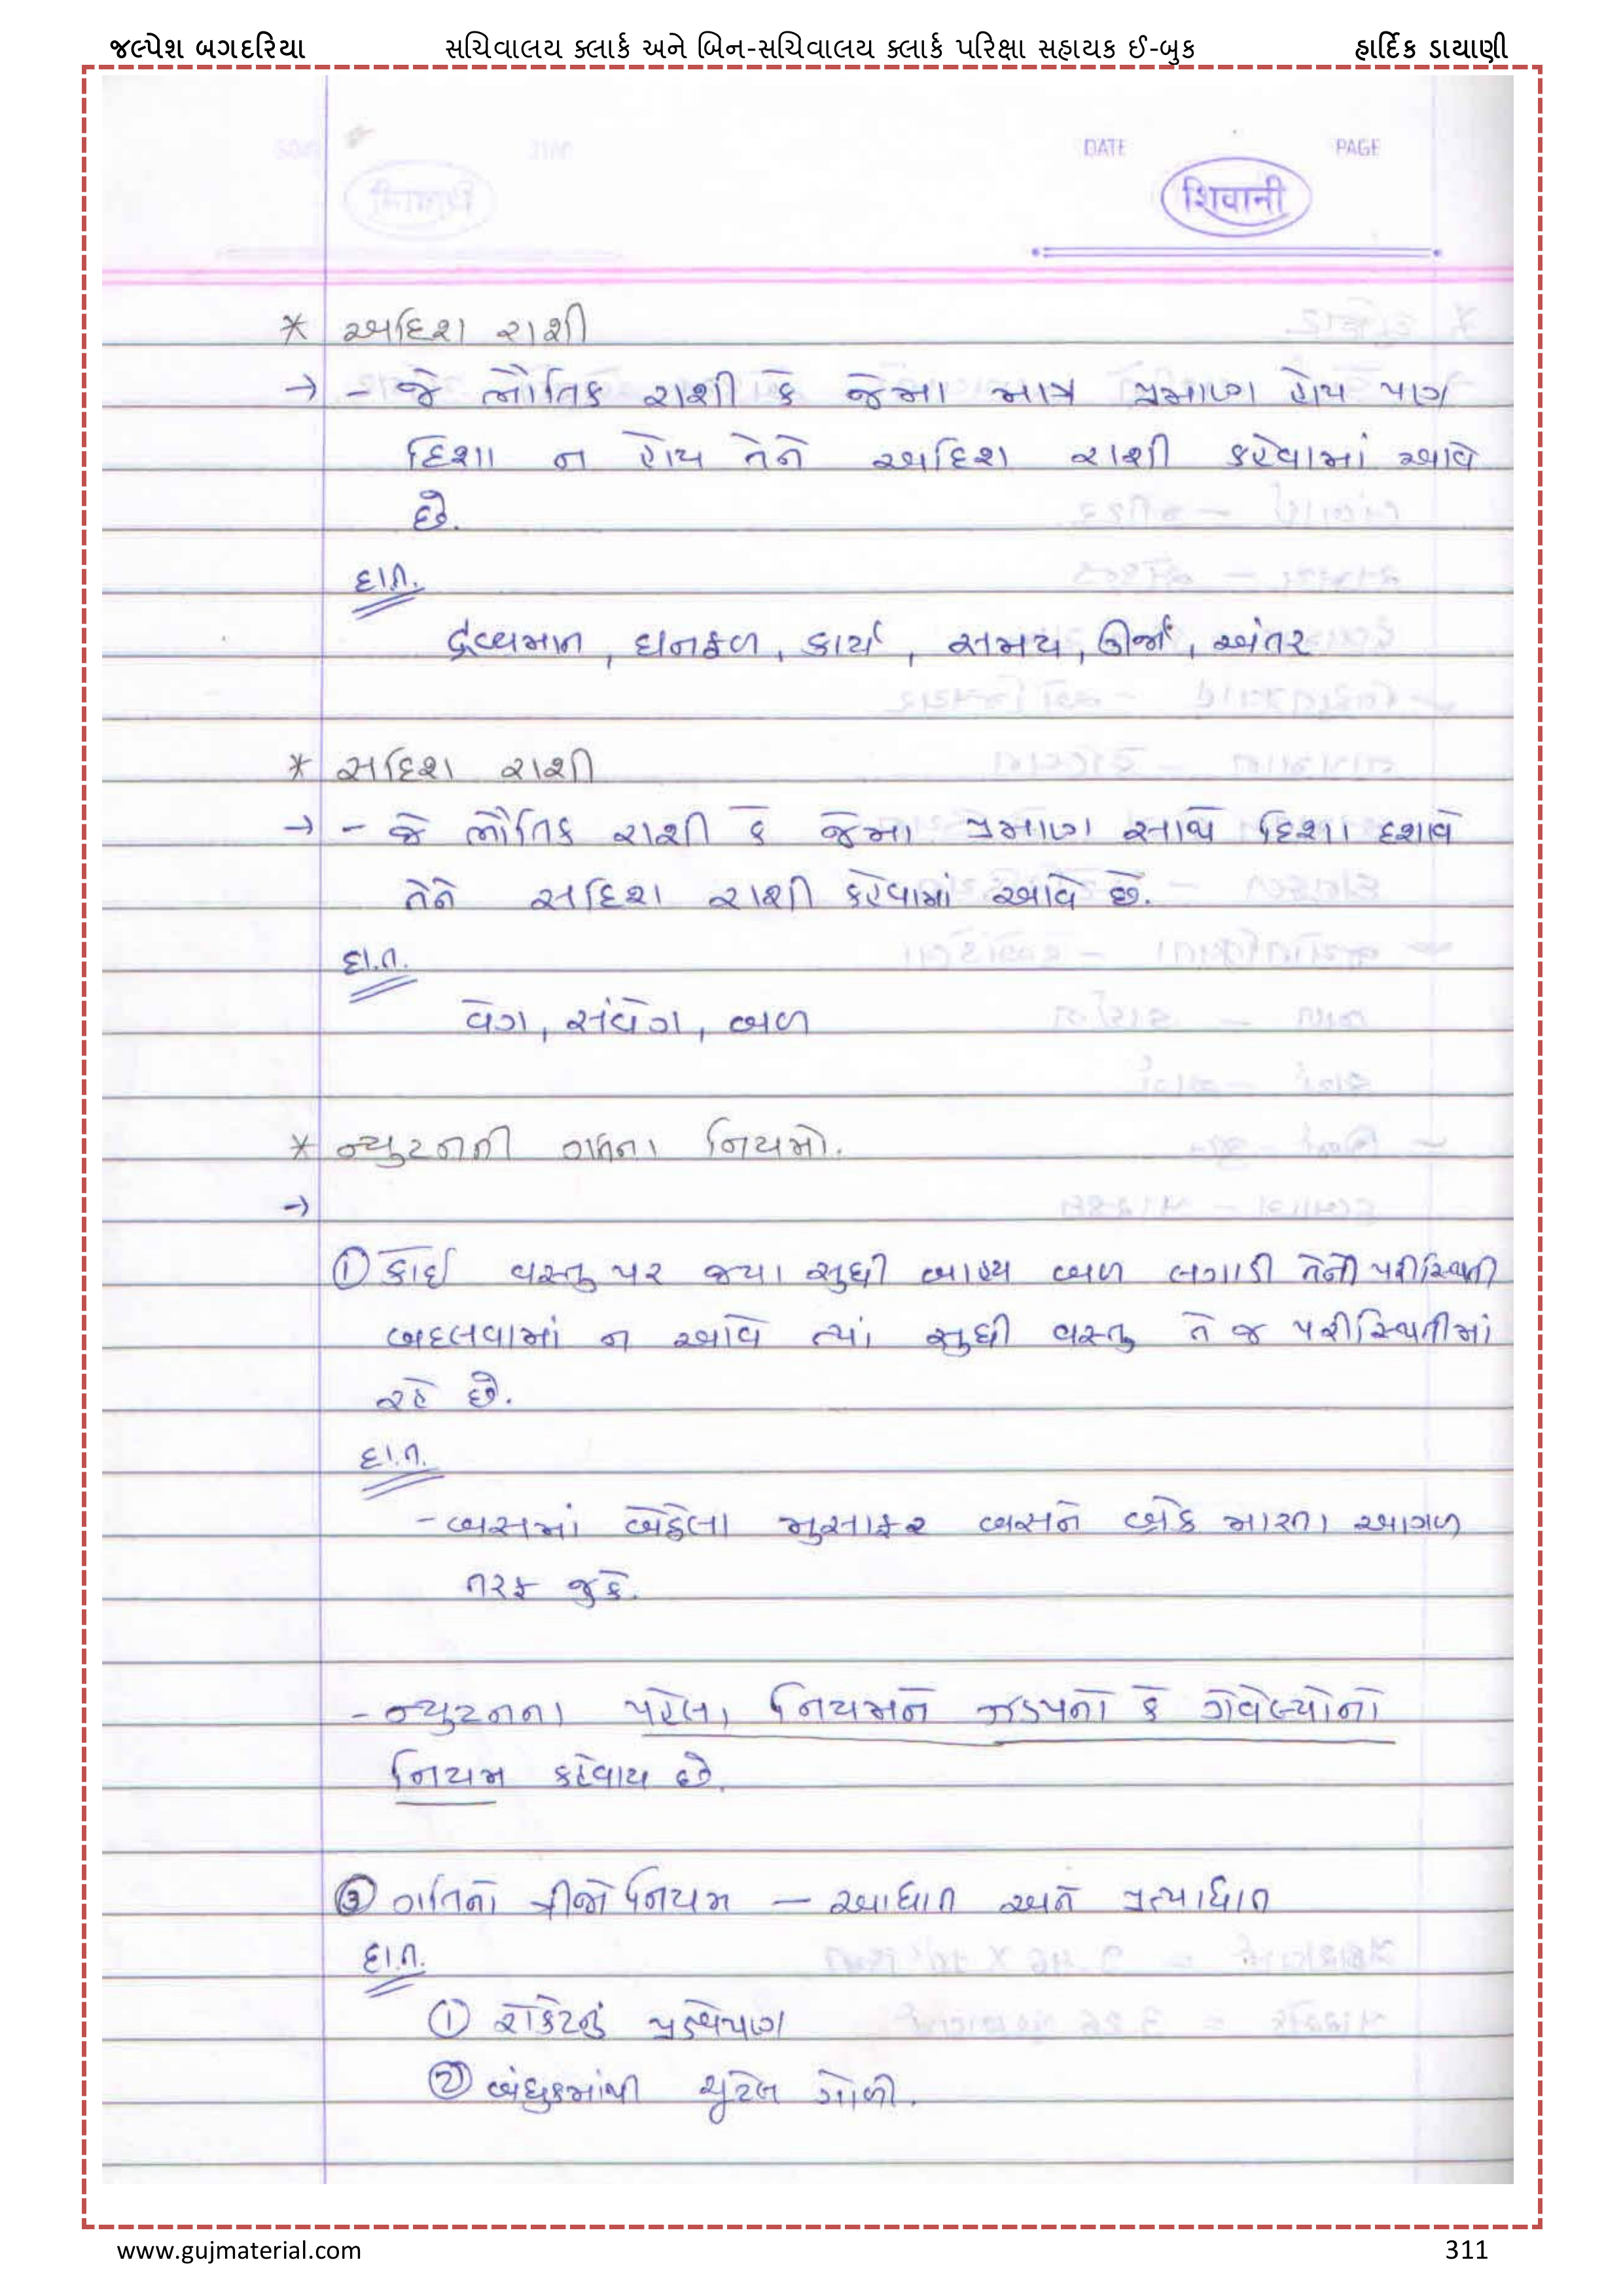 જલ્પેશ બગદરિયા સચિવાલય ક્લાર્ક અને બિન-સચિવાલય ક્લાર્ક પરિક્ષા સહાયક ઈ-બુક હાર્દિક ડાયાણી
DATE PAGE
शिवानी
* અદિશ રાશી
→ - જે ભૌતિક રાશી કે જેમા માત્ર પ્રમાણ હોય પણ
દિશા ન હોય તેને અદિશ રાશી કહેવામાં આવે
છે.
દા.ત.
દ્રવ્યમાન, ઘનફળ, કાર્ય, સમય, ઊર્જા, અંતર
* સદિશ રાશી
→ - જે ભૌતિક રાશી કે જેમા પ્રમાણ સાથે દિશા દશાવે
તેને સદિશ રાશી કહેવામાં આવે છે.
દા.ત.
વેગ, સંવેગ, બળ
* ન્યુટનની ગતિના નિયમો.
→
① કોઈ વસ્તુ પર જ્યા સુધી બાહ્ય બળ લગાડી તેની પરીસ્થિતી
બદલવામાં ન આવે ત્યાં સુધી વસ્તુ તે જ પરીસ્થિતીમાં
રહે છે.
દા.ત.
- બસમાં બેઠેલા મુસાફર બસને બ્રેક મારતા આગળ
તરફ જુકે.
- ન્યુટનના પહેલા નિયમને જડપનો કે ગેલેલ્યોનો
નિયમ કહેવાય છે.
③ ગતિનો ત્રીજો નિયમ – આઘાત અને પ્રત્યાઘાત
દા.ત.
① રોકેટનું પ્રક્ષેપણ
② બંધુકમાંથી છુટેલ ગોળી.
www.gujmaterial.com 311